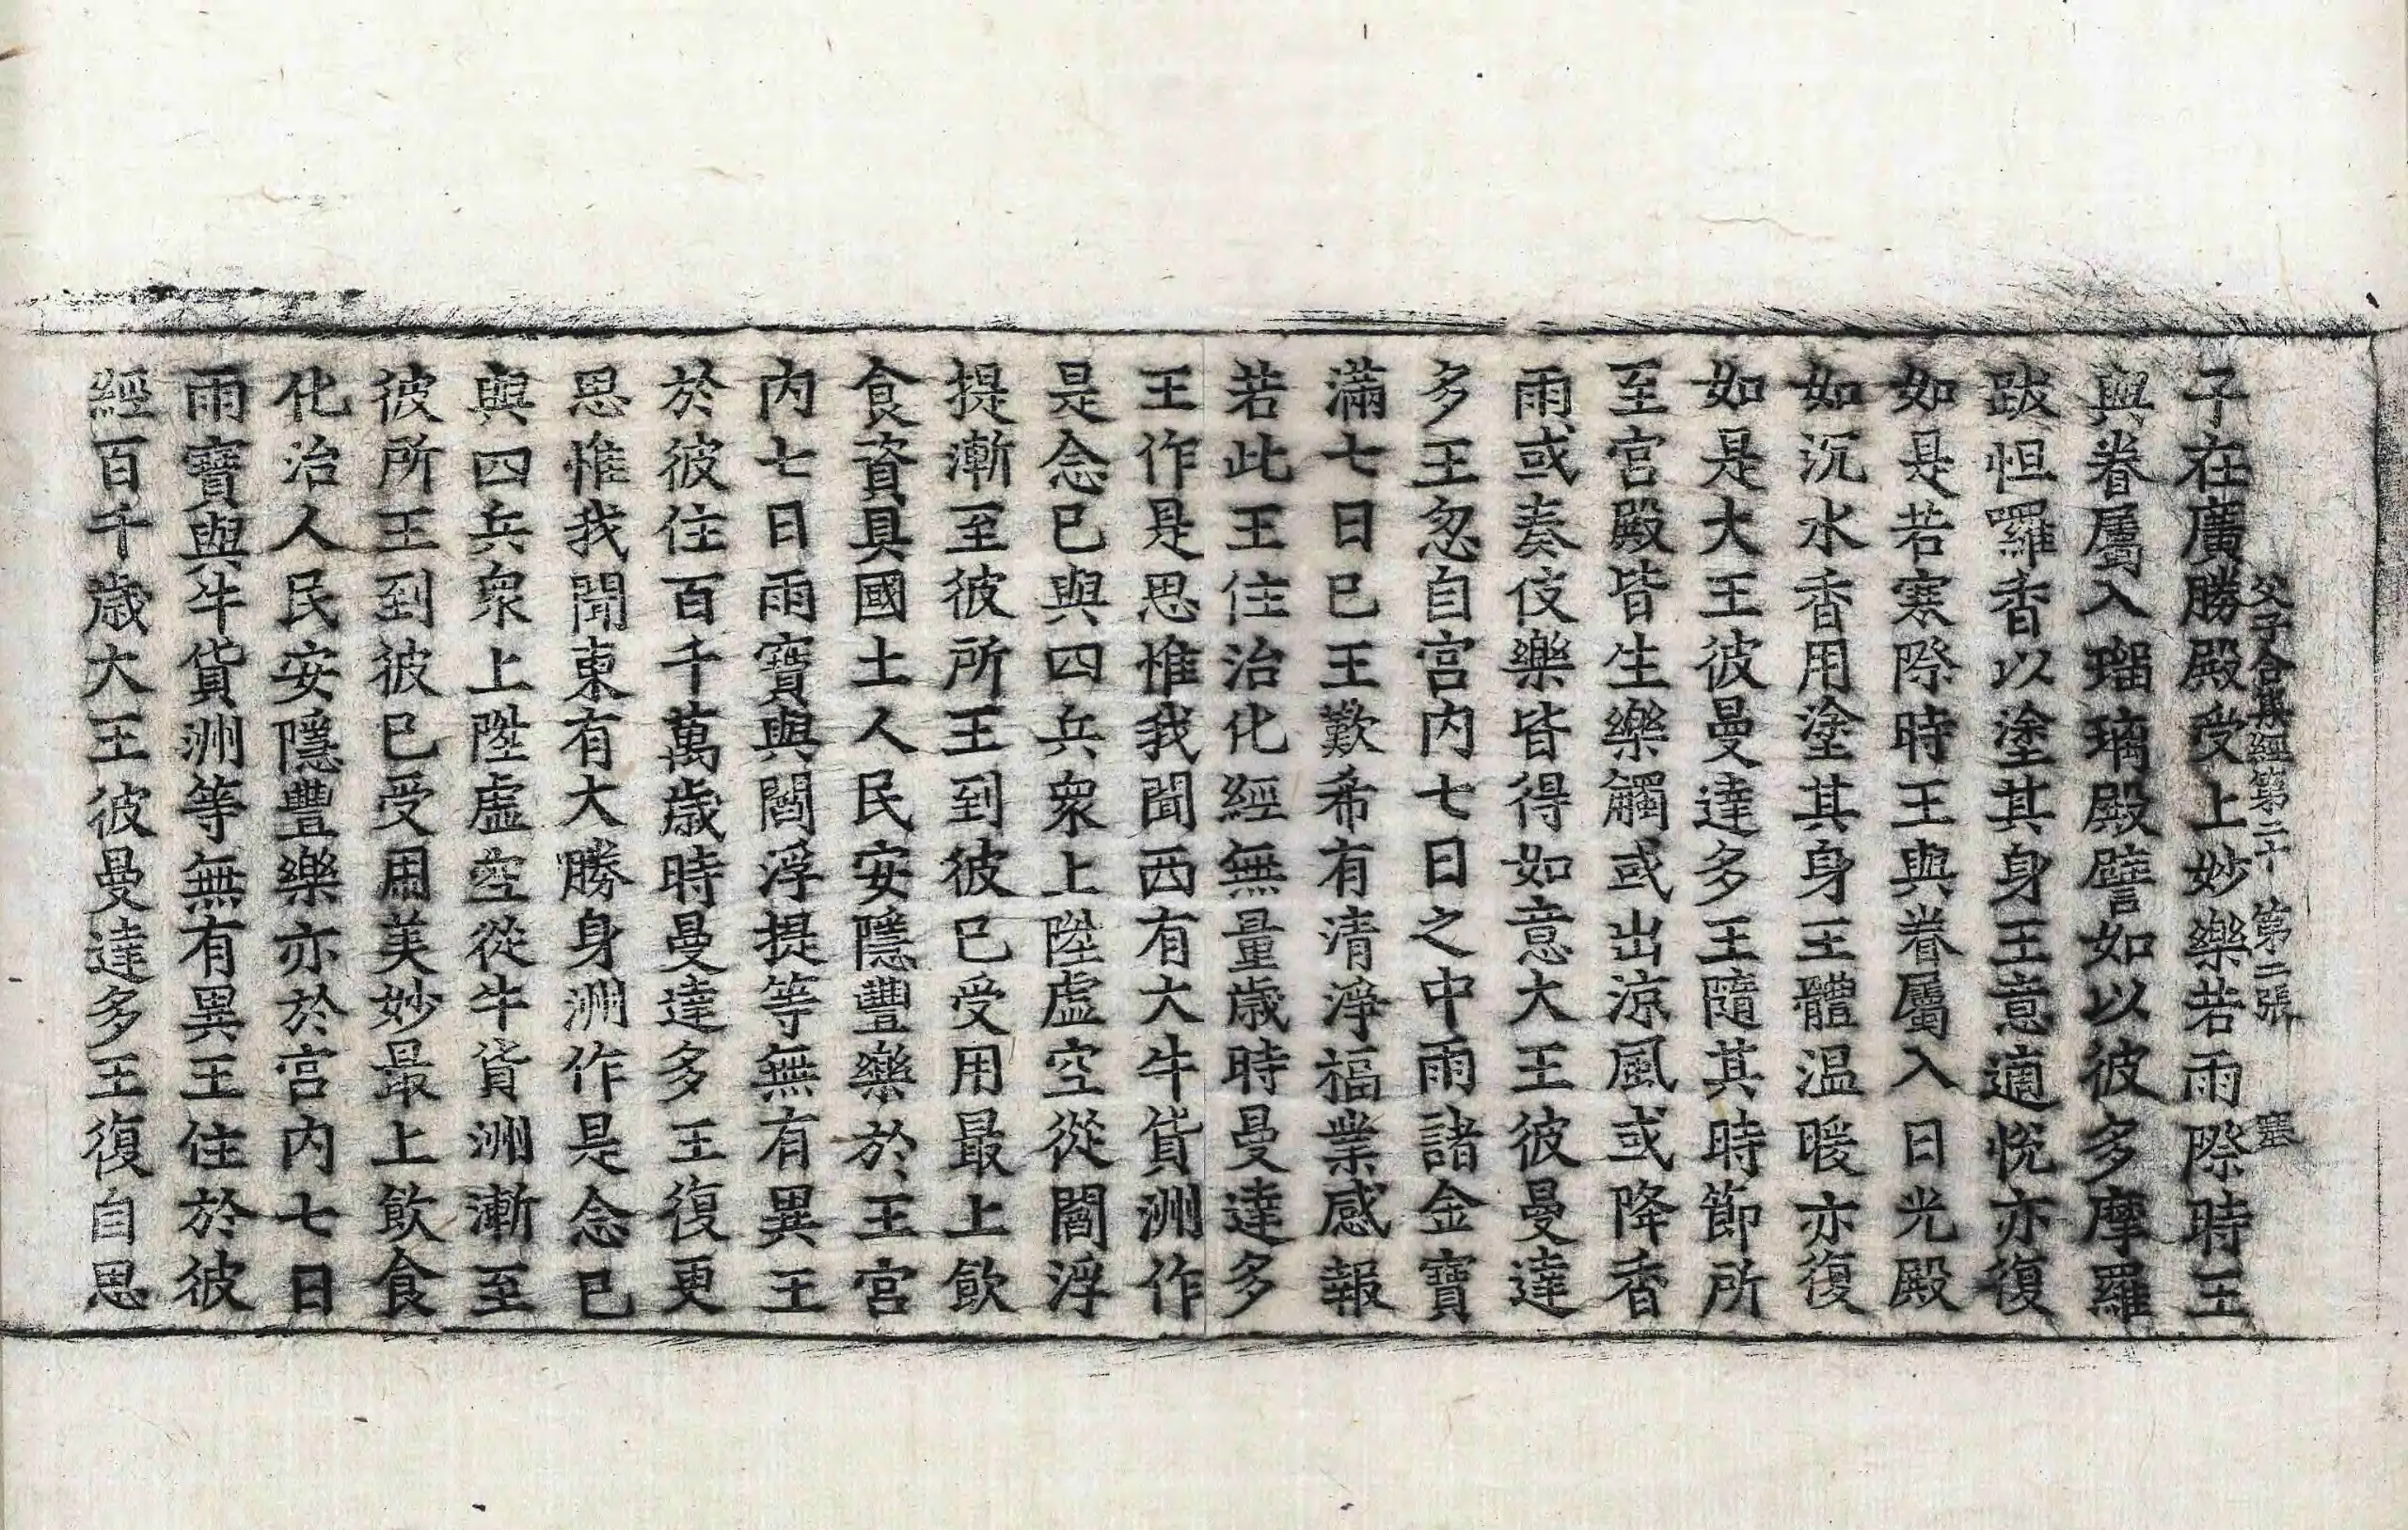 父子合集經第二十　第二張　塞
子在廣勝殿受上妙樂若雨際時王
與眷屬入瑠璃殿譬如以彼多摩羅
跋怛囉香以塗其身王意適悅亦復
如是若寒際時王與眷屬入日光殿
如沉水香用塗其身王體温暖亦復
如是大王彼曼達多王隨其時節所
至宮殿皆生樂觸或出涼風或降香
雨或奏伎樂皆得如意大王彼曼達
多王忽自宮内七日之中雨諸金寶
滿七日已王歎希有清淨福業感報
若此王住治化經無量歲時曼達多
王作是思惟我聞西有大牛貨洲作
是念已與四兵衆上陞虛空從閻浮
提漸至彼所王到彼已受用最上飲
食資具國土人民安隱豐樂於王宮
内七日雨寶與閻浮提等無有異王
於彼住百千萬歲時曼達多王復更
思惟我聞東有大勝身洲作是念已
與四兵衆上陞虛空從牛貨洲漸至
彼所王到彼已受用美妙最上飲食
化治人民安隱豐樂亦於宮内七日
雨寶與牛貨洲等無有異王住於彼
經百千歲大王彼曼達多王復自思